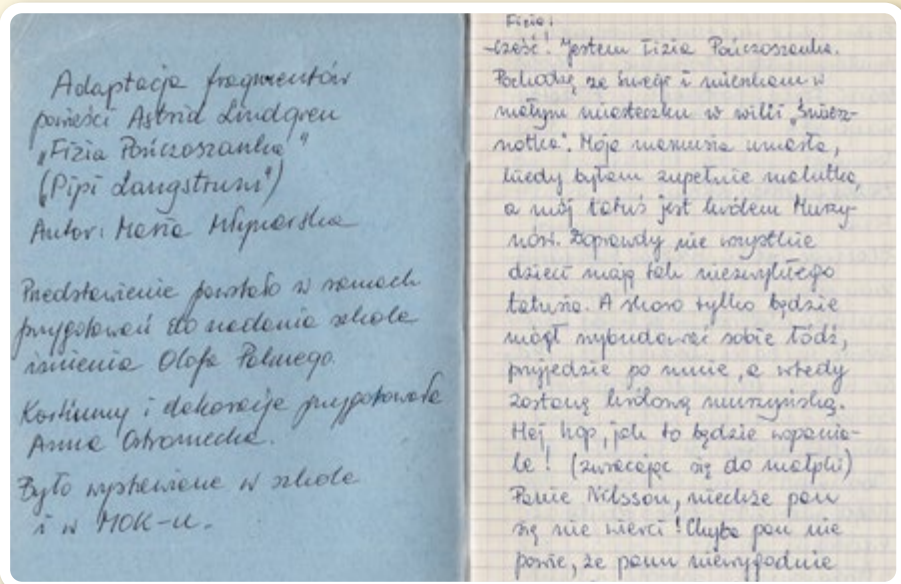 Adaptacja fragmentów
powieści Astrid Lindgren
"Fizia Pończoszanka"
(Pipi Langstrum")
Autor: Maria Młynarska
Przedstawienie powstało w ramach
przygotowań do nadania szkole
imienia Olofa Palmego.
Kostiumy i dekoracje przygotowała
Anna Ostromecka.
Było wystawiane w szkole
i w MOK-u.
Fizia:
-Cześć! Jestem Fizia Pończoszanka.
Pochodzę ze Szwecji i mieszkam w
małym miasteczku w willi „Śmiesz-
notka". Moja mamusia umarła,
kiedy byłam zupełnie malutka,
a mój tatuś jest królem Murzy-
nów. Doprawdy nie wszystkie
dzieci mają tak niezwykłego
tatusia. A skoro tylko będzie
mógł wybudować sobie łódź,
przyjedzie po mnie, a wtedy
zostanę królową murzyńską.
Hej hop, jak to będzie wspania-
le! (zwracając się do małpki)
Panie Nilsson, niechże pan
się nie wierci! Chyba pan nie
powie, że panu niewygodnie